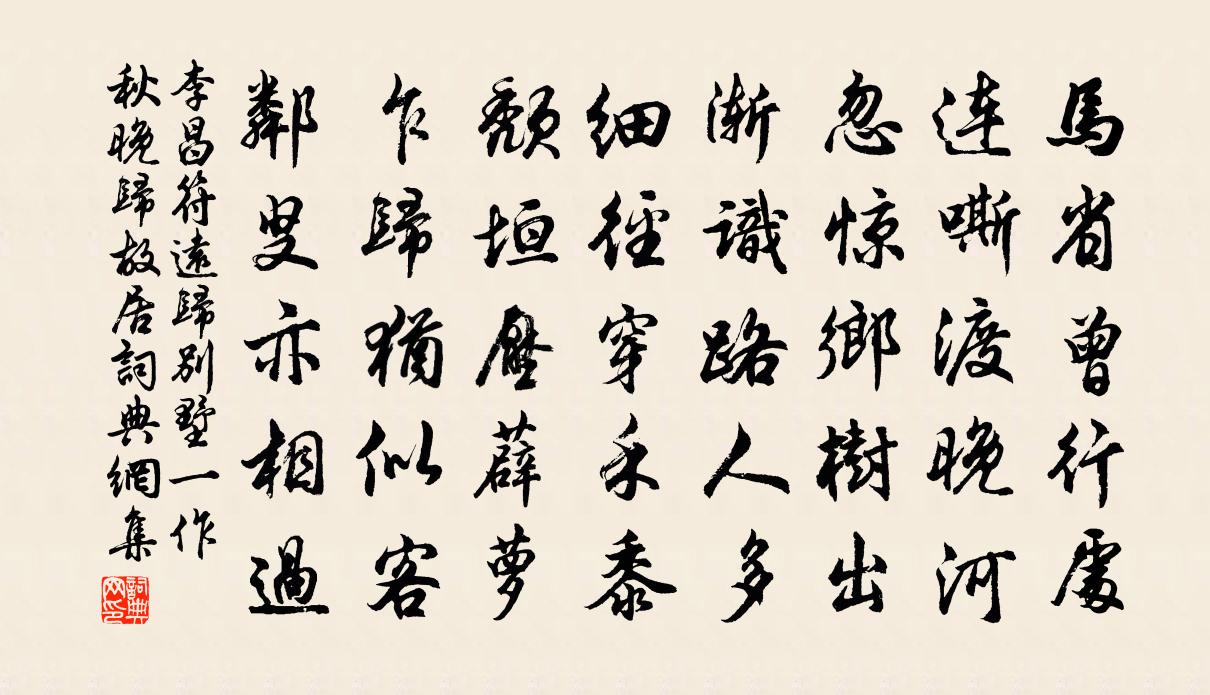 馬省曾行處
連嘶渡晚河
忽惊鄉樹出
漸識路人多
細徑穿禾黍
頹垣壓薜蘿
乍歸猶似客
鄰叟亦相過
李昌符遠歸別墅一作
秋晚歸故居詞典網集
詞典网印